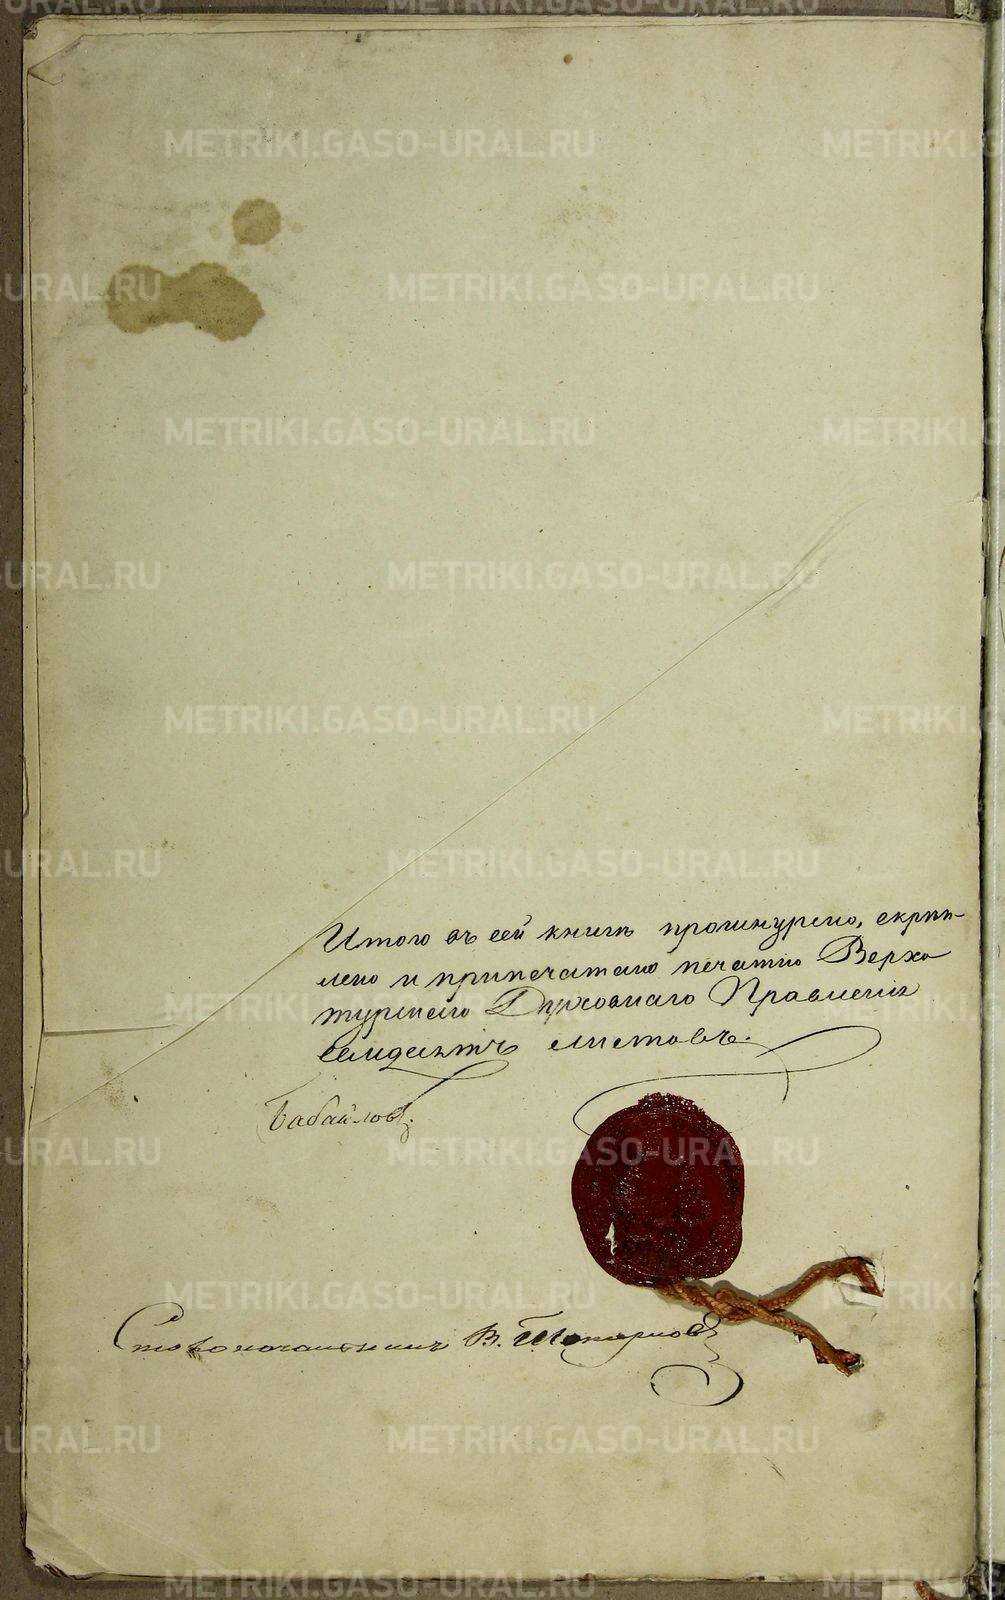 Итого въ сей книгѣ прошнурено, скрѣп-
лено и припечатано печатію Верхо
турскаго Духовнаго Правленія
семдесятъ листовъ.
Бабайловъ.
Столоначальникъ В.
METRIKI.GASO-URAL.RU